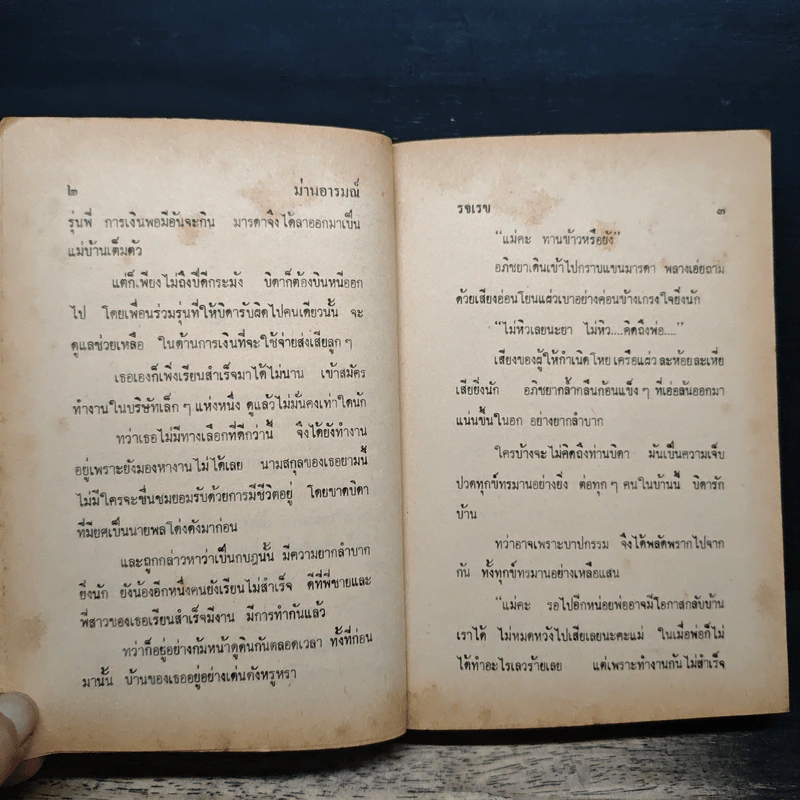 ๒ ม่านอารมณ์
รุ่นพี่ การเงินพอมีอันจะกิน มารดาจึงได้ลาออกมาเป็น
แม่บ้านเต็มตัว
แต่ก็เพียงไม่ถึงปีดีกระมัง บิดาก็ต้องบินหนีออก
ไป โดยเพื่อนร่วมรุ่นที่ให้บิดารับผิดไปคนเดียวนั้น จะ
ดูแลช่วยเหลือ ในด้านการเงินที่จะใช้จ่ายส่งเสียลูก ๆ
เธอเองก็เพิ่งเรียนสำเร็จมาได้ไม่นาน เข้าสมัคร
ทำงานในบริษัทเล็ก ๆ แห่งหนึ่ง ดูแล้วไม่มั่นคงเท่าใดนัก
ทว่าเธอไม่มีทางเลือกที่ดีกว่านี้ จึงได้ยังทำงาน
อยู่เพราะยังมองหางานไม่ได้เลย นามสกุลของเธอยามนี้
ไม่มีใครจะชื่นชมยอมรับด้วยการมีชีวิตอยู่ โดยขาดบิดา
ที่มียศเป็นนายพลโด่งดังมาก่อน
และถูกกล่าวหาว่าเป็นกบฎนั้น มีความยากลำบาก
ยิ่งนัก ยังน้องอีกหนึ่งคนยังเรียนไม่สำเร็จ ดีที่พี่ชายและ
พี่สาวของเธอเรียนสำเร็จมีงาน มีการทำกันแล้ว
ทว่าก็อยู่อย่างก้มหน้าดูดินกันตลอดเวลา ทั้งที่ก่อน
มานั้น บ้านของเธออยู่อย่างเด่นดังหรูหรา
รจเรข ๓
“แม่คะ ทานข้าวหรือยัง”
อภิชยาเดินเข้าไปกราบแขนมารดา พลางเอ่ยถาม
ด้วยเสียงอ่อนโยนแผ่วเบาอย่างค่อนข้างเกรงใจยิ่งนัก
“ไม่หิวเลยนะยา ไม่หิว....คิดถึงพ่อ....”
เสียงของผู้ให้กำเนิดโหยเครือแผ่วละห้อยละเหี่ย
เสียยิ่งนัก อภิชยากล้ำกลืนก้อนแข็ง ๆ ที่เอ่อล้นออกมา
แน่นขึ้นในอก อย่างยากลำบาก
ใครบ้างจะไม่คิดถึงท่านบิดา มันเป็นความเจ็บ
ปวดทุกข์ทรมานอย่างยิ่ง ต่อทุก ๆ คนในบ้านนี้ บิดารัก
บ้าน
ทว่าอาจเพราะบาปกรรม จึงได้พลัดพรากไปจาก
กัน ทั้งทุกข์ทรมานอย่างเหลือแสน
“แม่คะ รอไปอีกหน่อยพ่ออาจมีโอกาสกลับบ้าน
เราได้ ไม่หมดหวังไปเสียเลยนะคะแม่ ในเมื่อพ่อก็ไม่
ได้ทำอะไรเลวร้ายเลย แต่เพราะทำงานกันไม่สำเร็จ